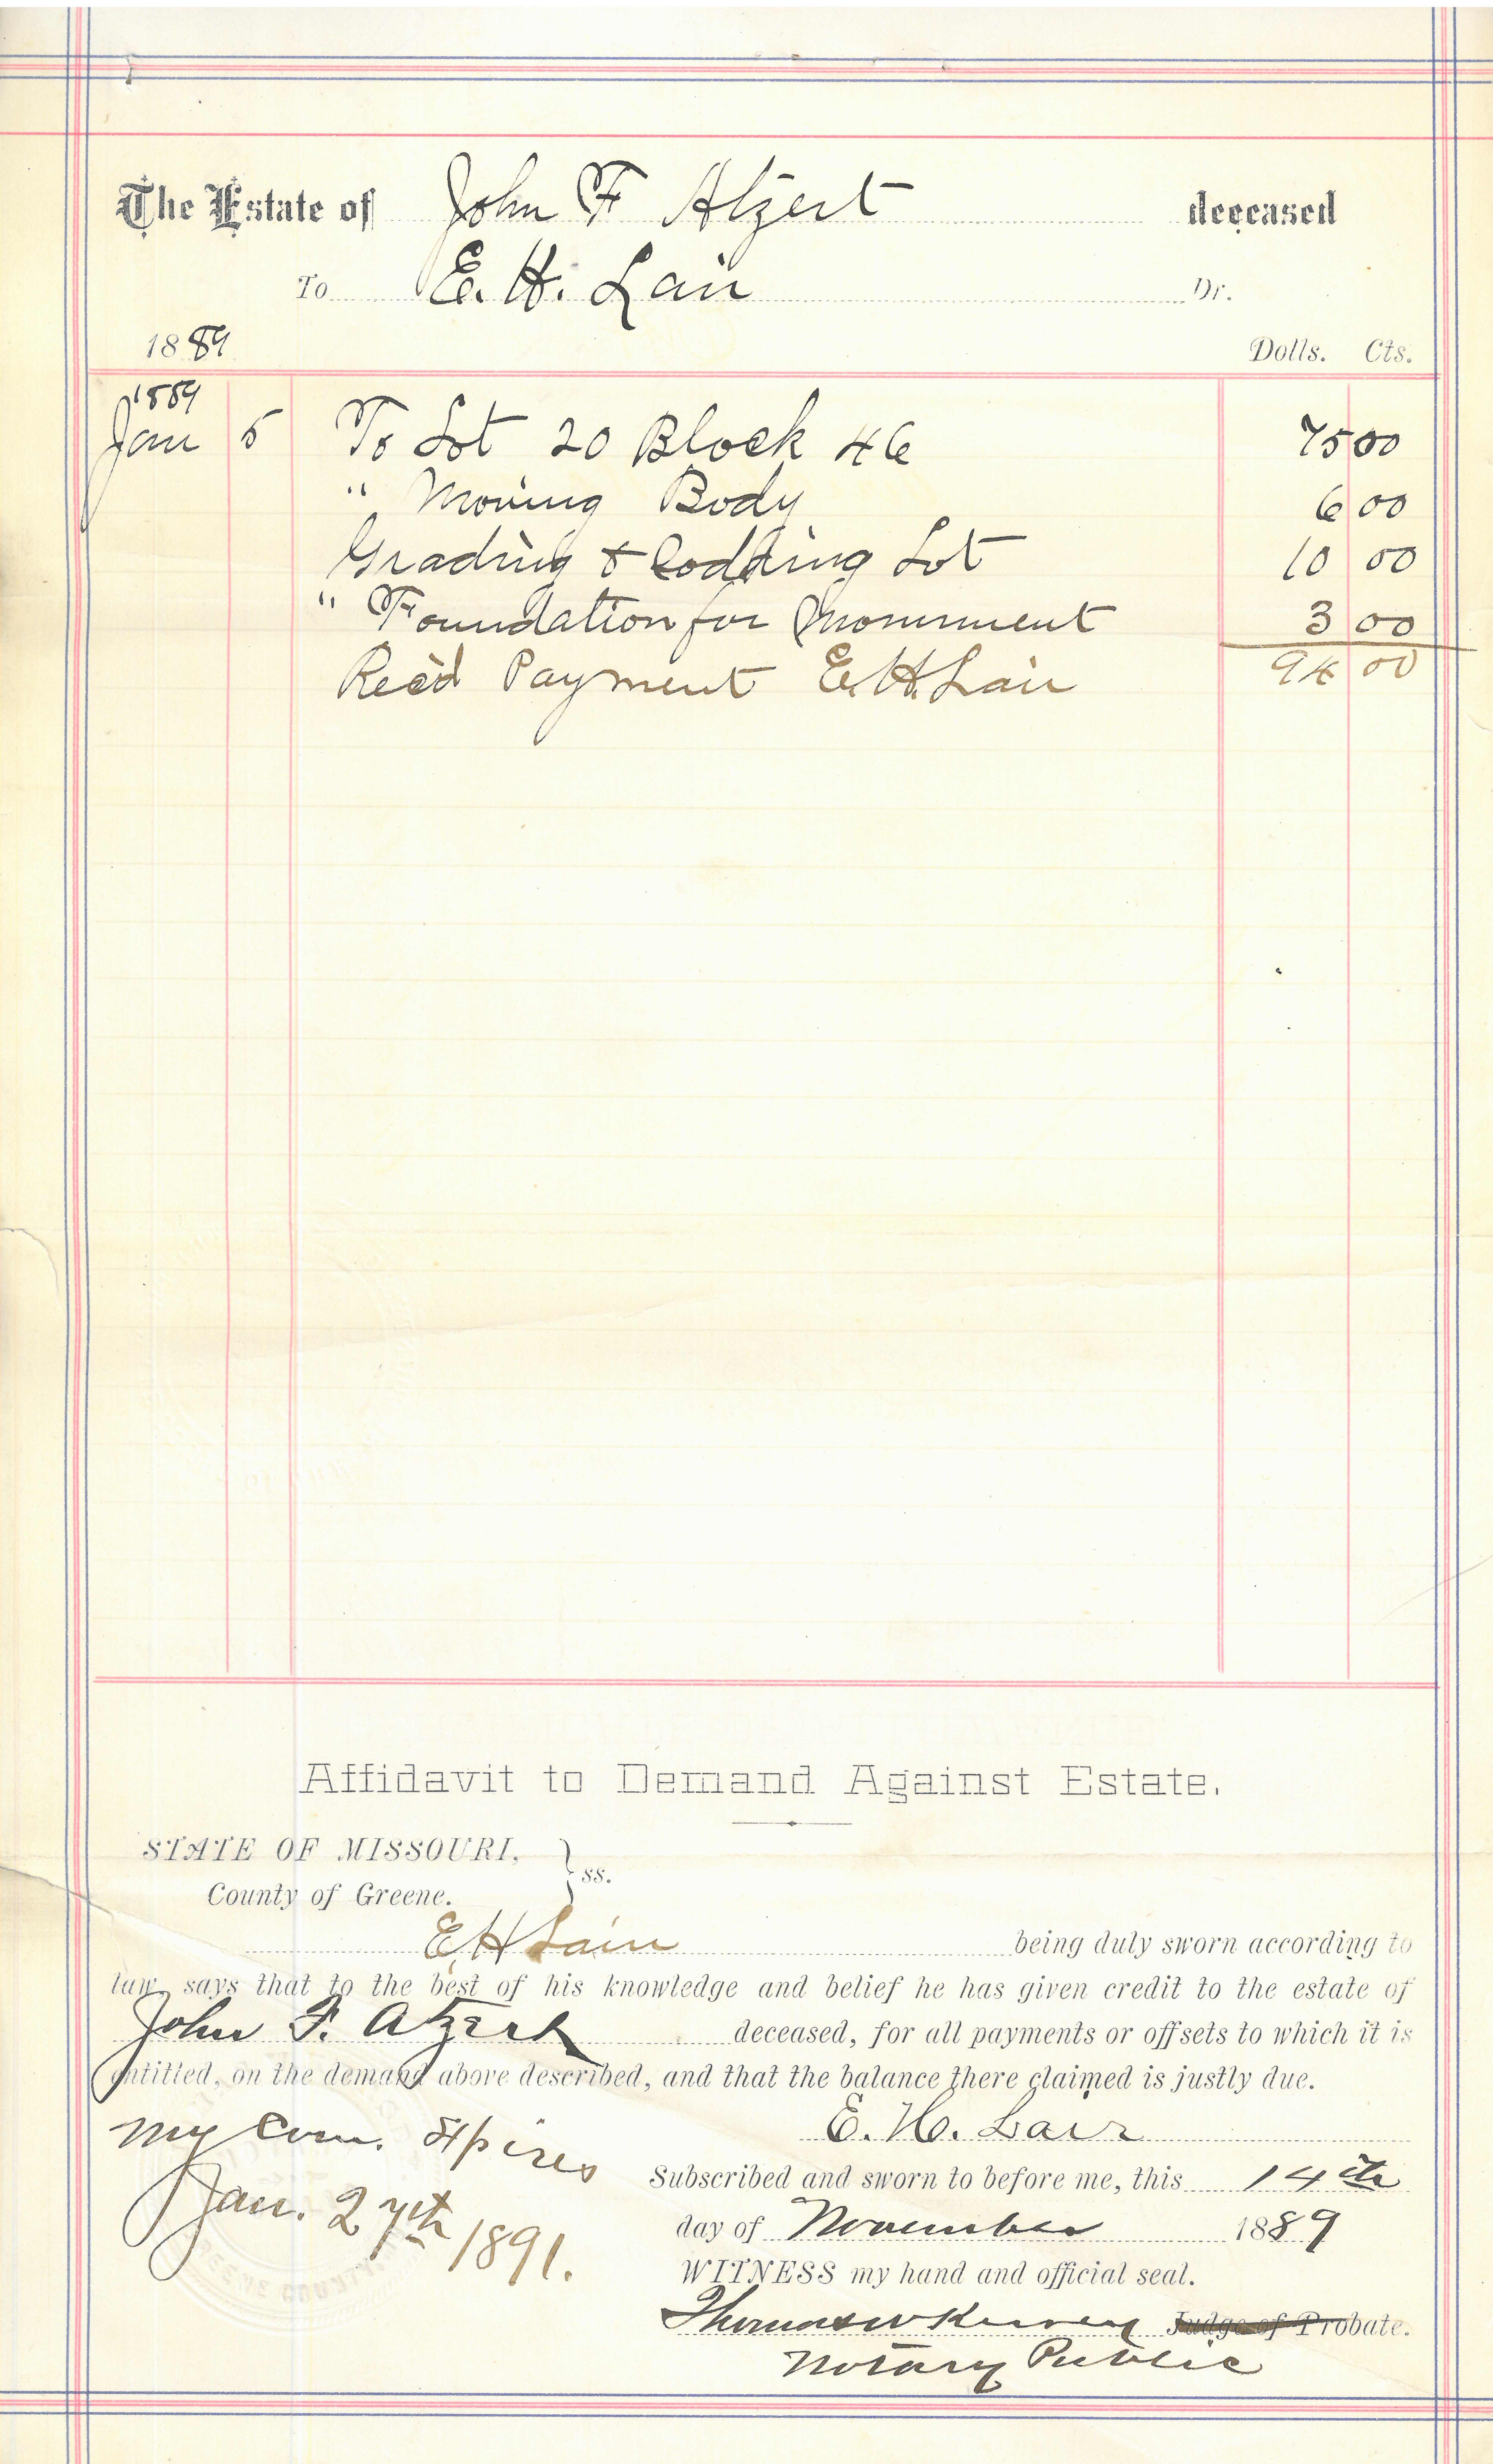 The Estate of John F Atzert deceased
To E. H. Lair Dr.
1889 Dolls. Cts.
1889
Jan 5 To Lot 20 Block 46 75 00
" Moving Body 6 00
Grading & Sodding Lot 10 00
" Foundation for Monument 3 00
Rec'd Payment E. H. Lair 94 00
Affidavit to Demand Against Estate.
STATE OF MISSOURI,
County of Greene. } ss.
E H Lair being duly sworn according to
law, says that to the best of his knowledge and belief he has given credit to the estate of
John F. Atzert deceased, for all payments or offsets to which it is
entitled, on the demand above described, and that the balance there claimed is justly due.
E. H. Lair
My Com. Expires
Jan. 27th 1891.
Subscribed and sworn to before me, this 14th
day of November 1889
WITNESS my hand and official seal.
Thomas W Judge of Probate.
Notary Public
GREENE COUNTY